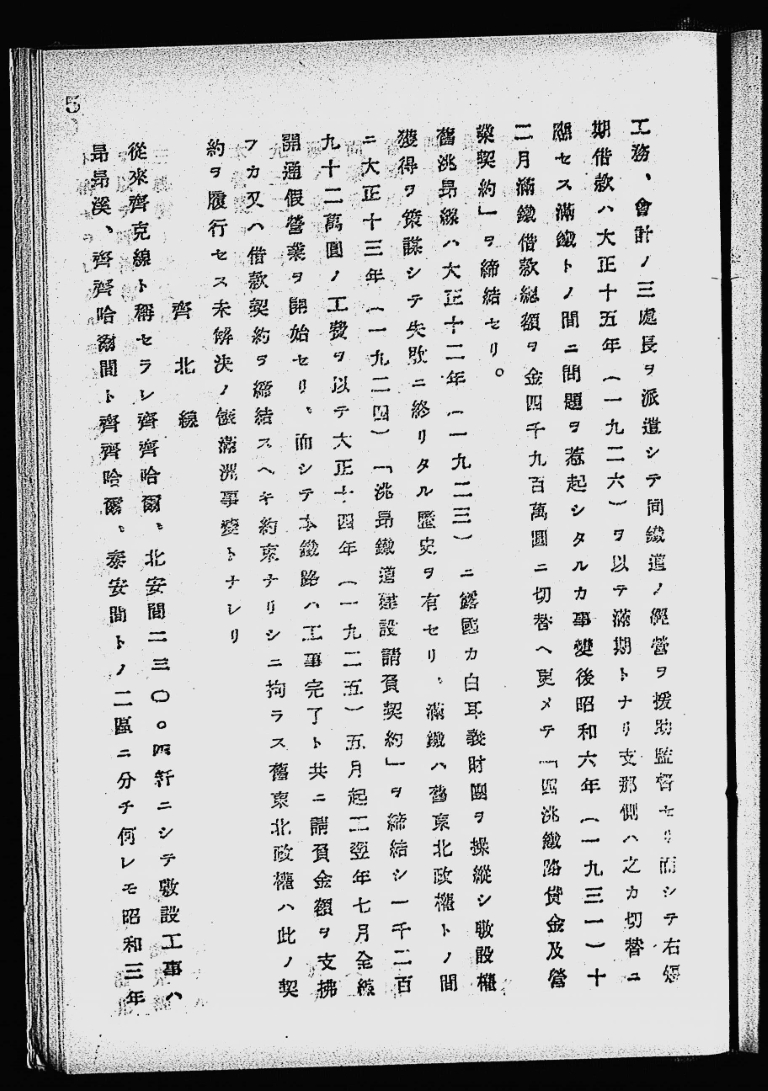 工務、會計ノ三處長ヲ派遣シテ同鐵道ノ經營ヲ援助監督セリ而シテ右短
期借款ハ大正十五年(一九二六)ヲ以テ滿期トナリ支那側ハ之カ切替ニ
應セス滿鐵トノ間ニ問題ヲ惹起シタルカ事變後昭和六年(一九三一)十
二月滿鐵借款總額ヲ金四千九百萬圓ニ切替ヘ更メテ「四洮鐵路貸金及營
業契約」ヲ締結セリ。
舊洮昂線ハ大正十二年(一九二三)ニ露國カ白耳義財團ヲ操縱シ敷設權
獲得ヲ策謀シテ失敗ニ終リタル歷史ヲ有セリ、滿鐵ハ舊東北政權トノ間
ニ大正十三年(一九二四)「洮昂鐵道建設請負契約」ヲ締結シ一千二百
九十二萬圓ノ工費ヲ以テ大正十四年(一九二五)五月起工翌年七月全線
開通假營業ヲ開始セリ、而シテ本鐵路ハ工事完了ト共ニ請負金額ヲ支拂
フカ又ハ借款契約ヲ締結スヘキ約束ナリシニ拘ラス舊東北政權ハ此ノ契
約ヲ履行セス未解決ノ儘滿洲事變トナレリ
齊北線
從來齊克線ト稱セラレ齊齊哈爾、北安間二三〇。四粁ニシテ敷設工事ハ
昂昂溪、齊齊哈爾間ト齊齊哈爾、泰安間トノ二區ニ分チ何レモ昭和三年
5